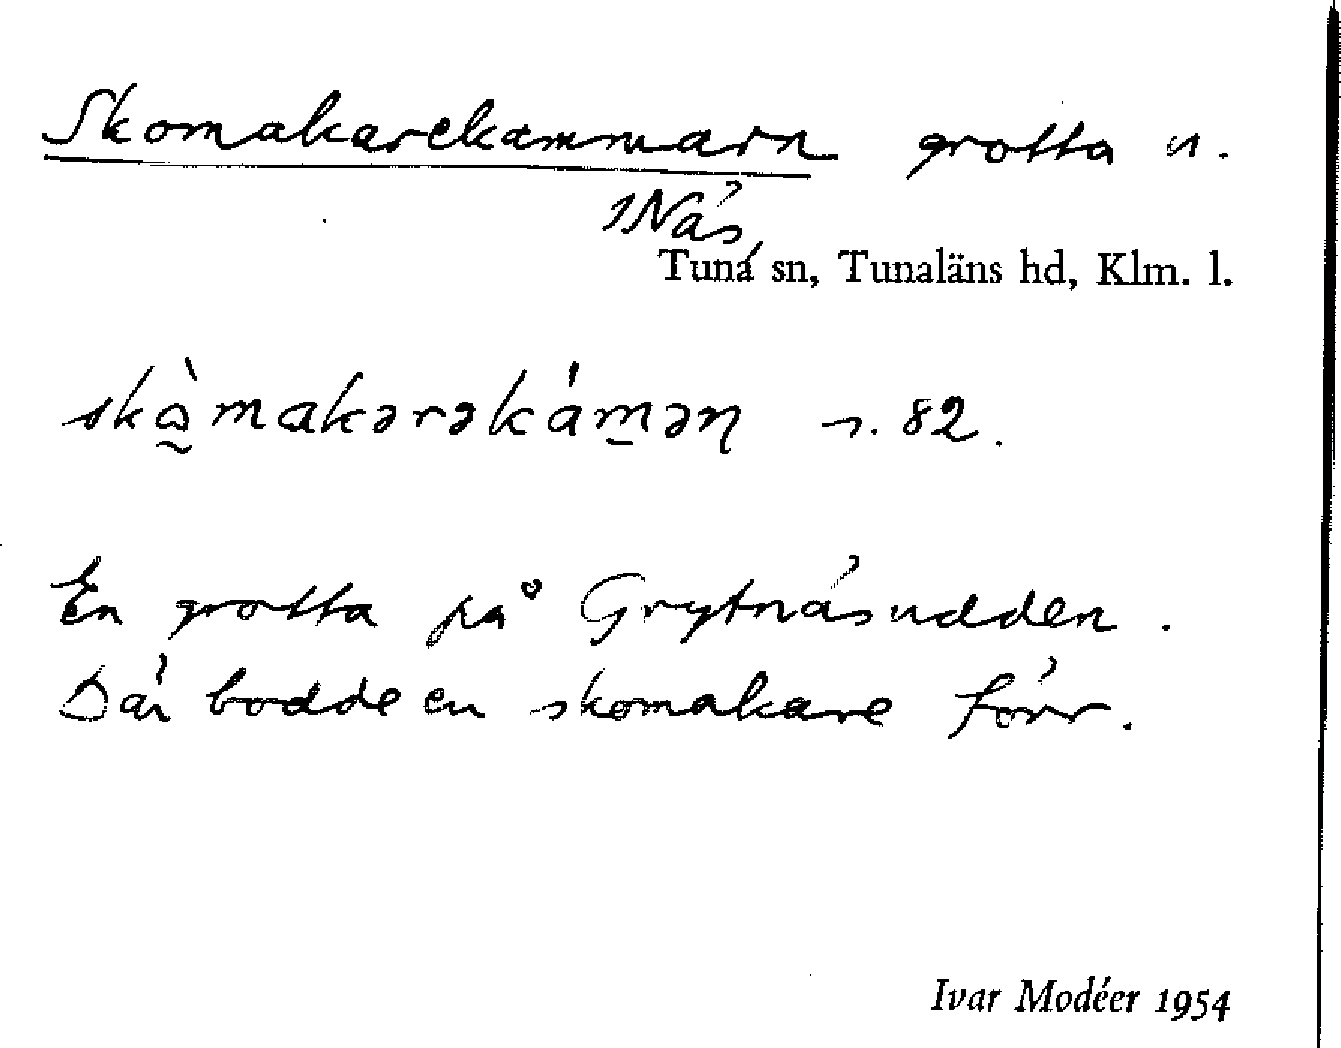 Skomakarekammarn grotta u.
1 Näs,
Tuna sn, Tunaläns hd, Klm. l.
skò̰makərəkám̱əɳ s. 82.
En grotta på Grytnäsudden.
Där bodde en skomakare förr.
Ivar Modéer 1954